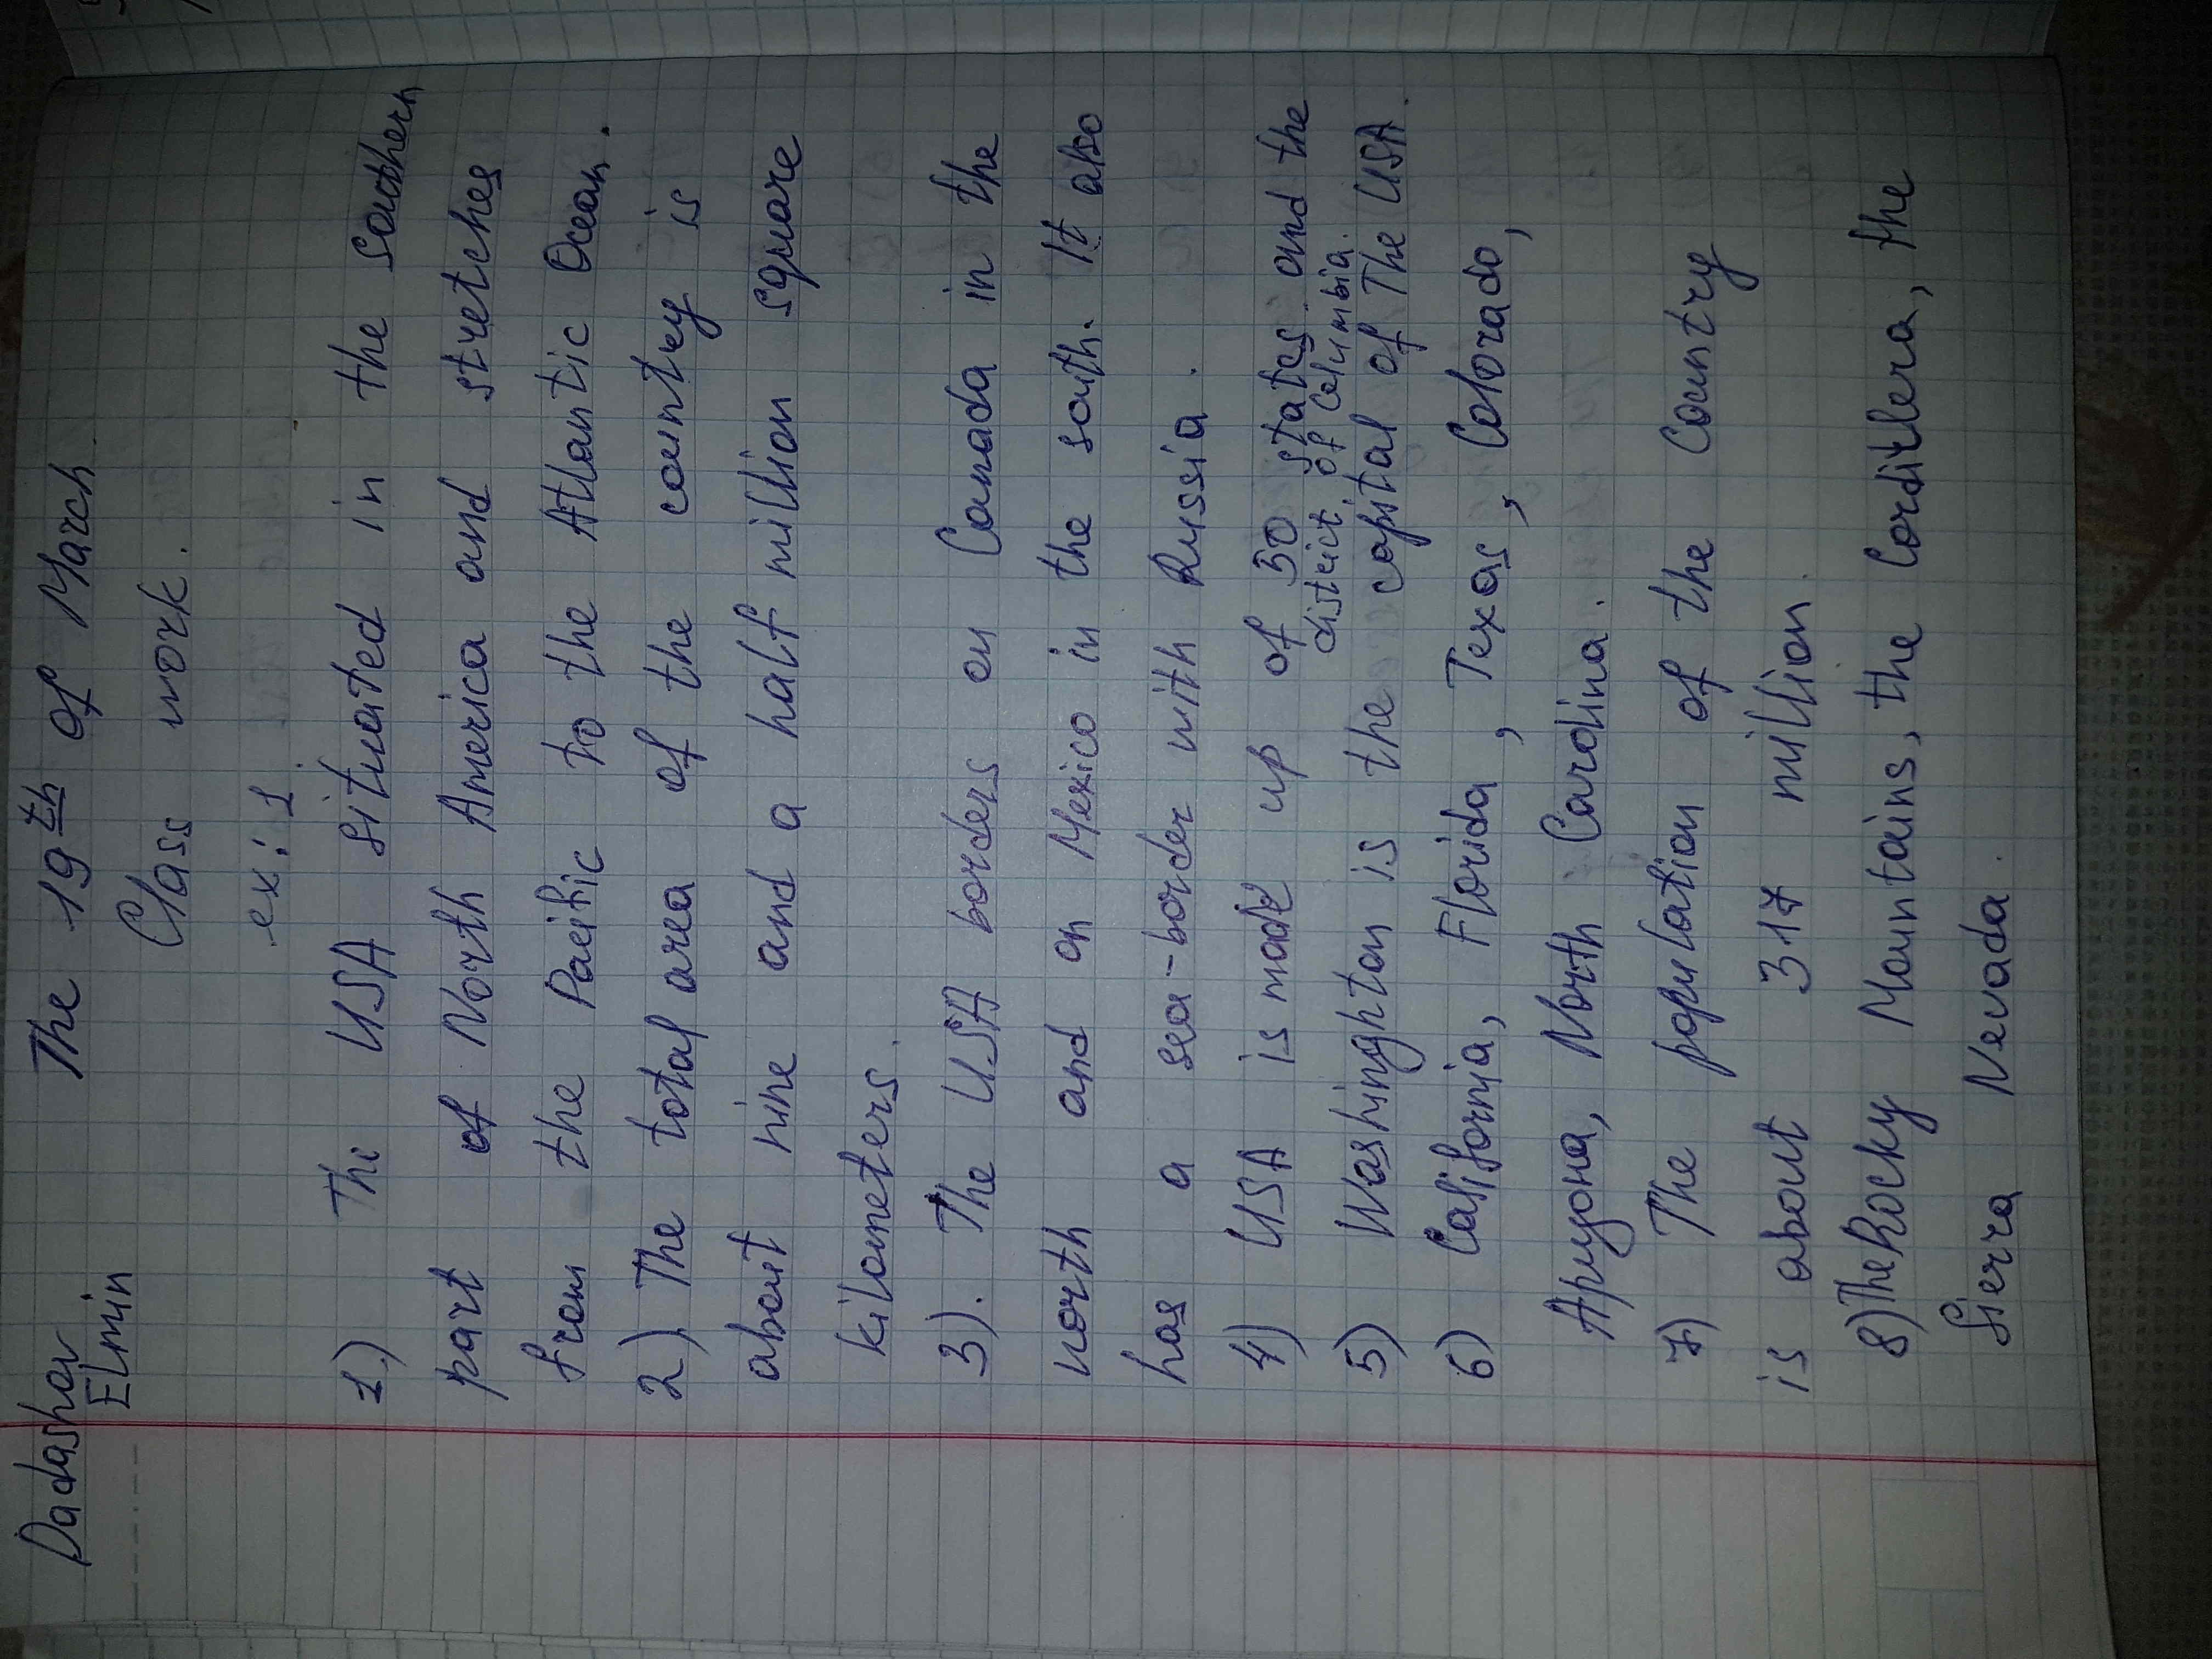 Dadashov The 19th of March
Elmin Class work.
ex: 1
1) The USA situated in the southern
part of North America and stretches
from the Pacific to the Atlantic Ocean.
2) The total area of the country is
about nine and a half million square
kilometers.
3). The USA borders on Canada in the
north and on Mexico in the south. It also
has a sea-border with Russia.
4) USA is made up of 50 states and the
district of Columbia.
5) Washinghton is the capital of The USA.
6) California, Florida, Texas, Colorado,
North Carolina.
7) The population of the Country
is about 317 million.
8) The Rocky Mountains, the Corditlera, the
Sierra Nevada.